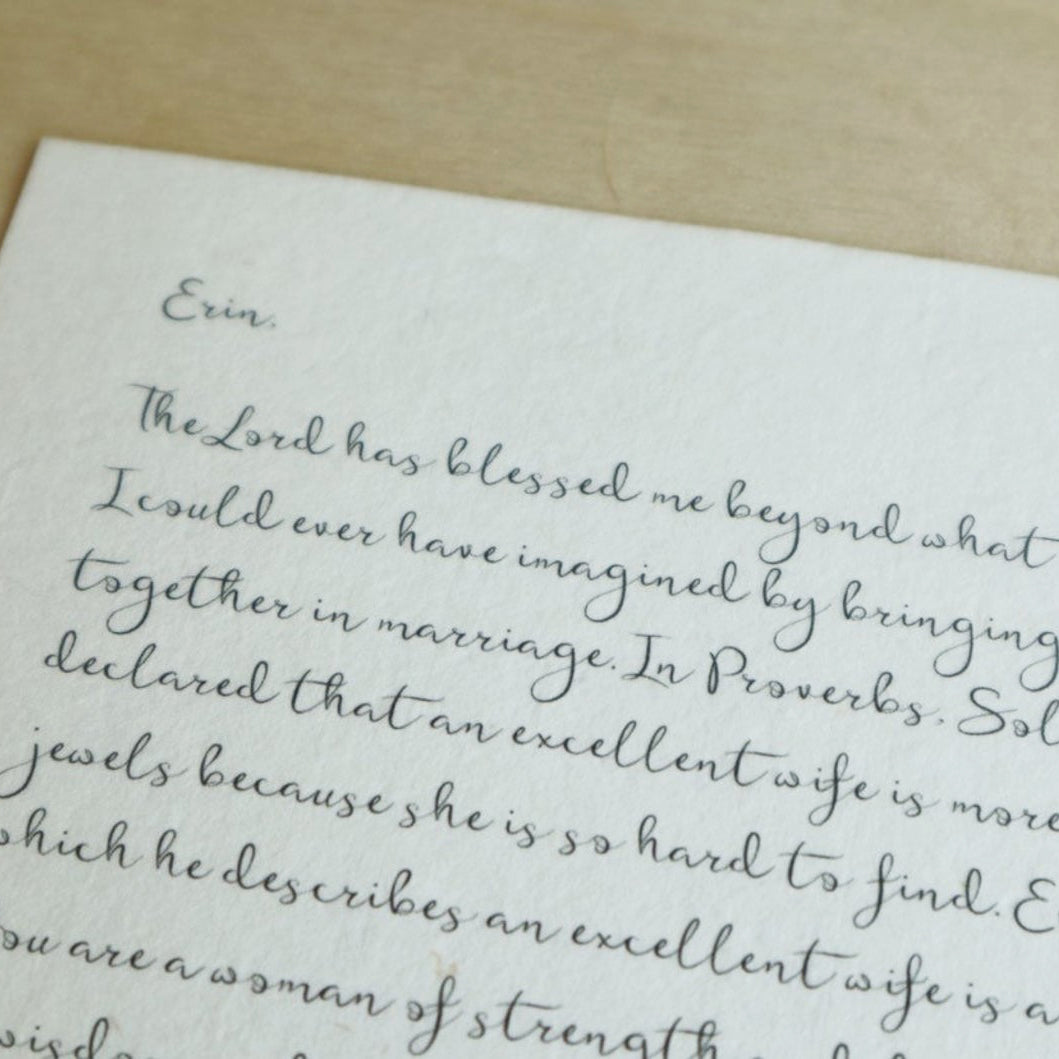 Erin,
The Lord has blessed me beyond what
I could ever have imagined by bringing
together in marriage. In Proverbs, Sol
declared that an excellent wife is more
jewels because she is so hard to find. E
which he describes an excellent wife is a
ou are a woman of strength